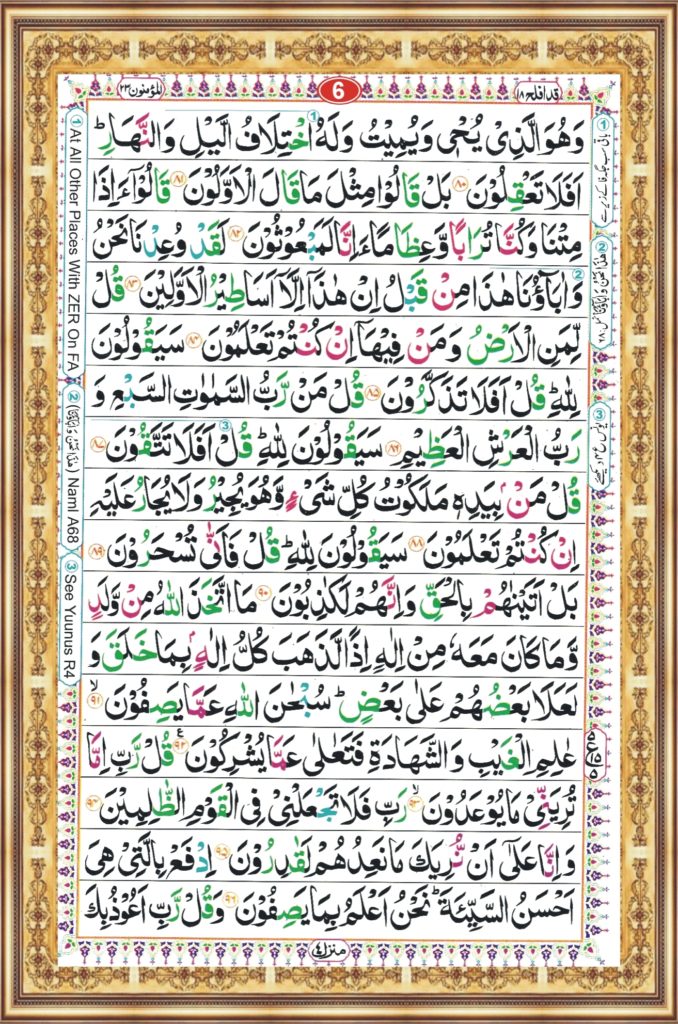 المؤمنون ٢٣
6
قد افلح ١٨
وَهُوَ الَّذِیْ یُحْیٖ وَیُمِیْتُ وَلَهُ اخْتِلَافُ الَّیْلِ وَالنَّهَارِ ؕ
اَفَلَا تَعْقِلُوْنَ ۸۰ بَلْ قَالُوْا مِثْلَ مَا قَالَ الْاَوَّلُوْنَ ۸۱ قَالُوْۤا ءَاِذَا
مِتْنَا وَكُنَّا تُرَابًا وَّعِظَامًا ءَاِنَّا لَمَبْعُوْثُوْنَ ۸۲ لَقَدْ وُعِدْنَا نَحْنُ
وَاٰبَآؤُنَا هٰذَا مِنْ قَبْلُ اِنْ هٰذَاۤ اِلَّاۤ اَسَاطِیْرُ الْاَوَّلِیْنَ ۸۳ قُلْ
لِّمَنِ الْاَرْضُ وَمَنْ فِیْهَاۤ اِنْ كُنْتُمْ تَعْلَمُوْنَ ۸۴ سَیَقُوْلُوْنَ
لِلّٰهِ ؕ قُلْ اَفَلَا تَذَكَّرُوْنَ ۸۵ قُلْ مَنْ رَّبُّ السَّمٰوٰتِ السَّبْعِ وَ
رَبُّ الْعَرْشِ الْعَظِیْمِ ۸۶ سَیَقُوْلُوْنَ لِلّٰهِ ؕ قُلْ اَفَلَا تَتَّقُوْنَ ۸۷
قُلْ مَنْۢ بِیَدِهٖ مَلَكُوْتُ كُلِّ شَیْءٍ وَّهُوَ یُجِیْرُ وَلَا یُجَارُ عَلَیْهِ
اِنْ كُنْتُمْ تَعْلَمُوْنَ ۸۸ سَیَقُوْلُوْنَ لِلّٰهِ ؕ قُلْ فَاَنّٰی تُسْحَرُوْنَ ۸۹
بَلْ اَتَیْنٰهُمْ بِالْحَقِّ وَاِنَّهُمْ لَكٰذِبُوْنَ ۹۰ مَا اتَّخَذَ اللّٰهُ مِنْ وَّلَدٍ
وَّمَا كَانَ مَعَهٗ مِنْ اِلٰهٍ اِذًا لَّذَهَبَ كُلُّ اِلٰهٍۭ بِمَا خَلَقَ وَ
لَعَلَا بَعْضُهُمْ عَلٰی بَعْضٍ ؕ سُبْحٰنَ اللّٰهِ عَمَّا یَصِفُوْنَ ۹۱ ۙ
عٰلِمِ الْغَیْبِ وَالشَّهَادَةِ فَتَعٰلٰی عَمَّا یُشْرِكُوْنَ ۹۲ قُلْ رَّبِّ اِمَّا
تُرِیَنِّیْ مَا یُوْعَدُوْنَ ۹۳ رَبِّ فَلَا تَجْعَلْنِیْ فِی الْقَوْمِ الظّٰلِمِیْنَ ۹۴
وَاِنَّا عَلٰۤی اَنْ نُّرِیَكَ مَا نَعِدُهُمْ لَقٰدِرُوْنَ ۹۵ اِدْفَعْ بِالَّتِیْ هِیَ
اَحْسَنُ السَّیِّئَةَ ؕ نَحْنُ اَعْلَمُ بِمَا یَصِفُوْنَ ۹۶ وَقُلْ رَّبِّ اَعُوْذُ بِكَ
منزل ٤
1 At All Other Places With ZER On FA
2 Naml A68
3 See Yuunus R4